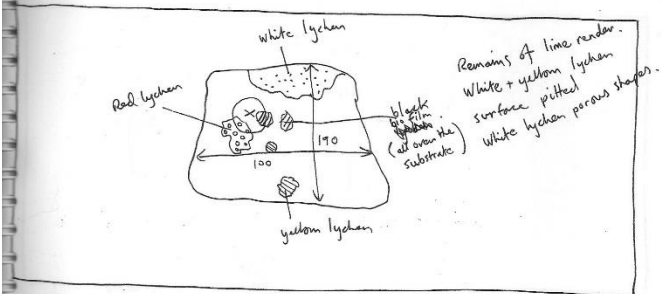 white lychen
Red lychen
X
black
bio film
(all over the
substrate)
190
100
yellow lychen
Remains of lime render.
White + yellow lychen
surface pitted
white lychen porous shapes.